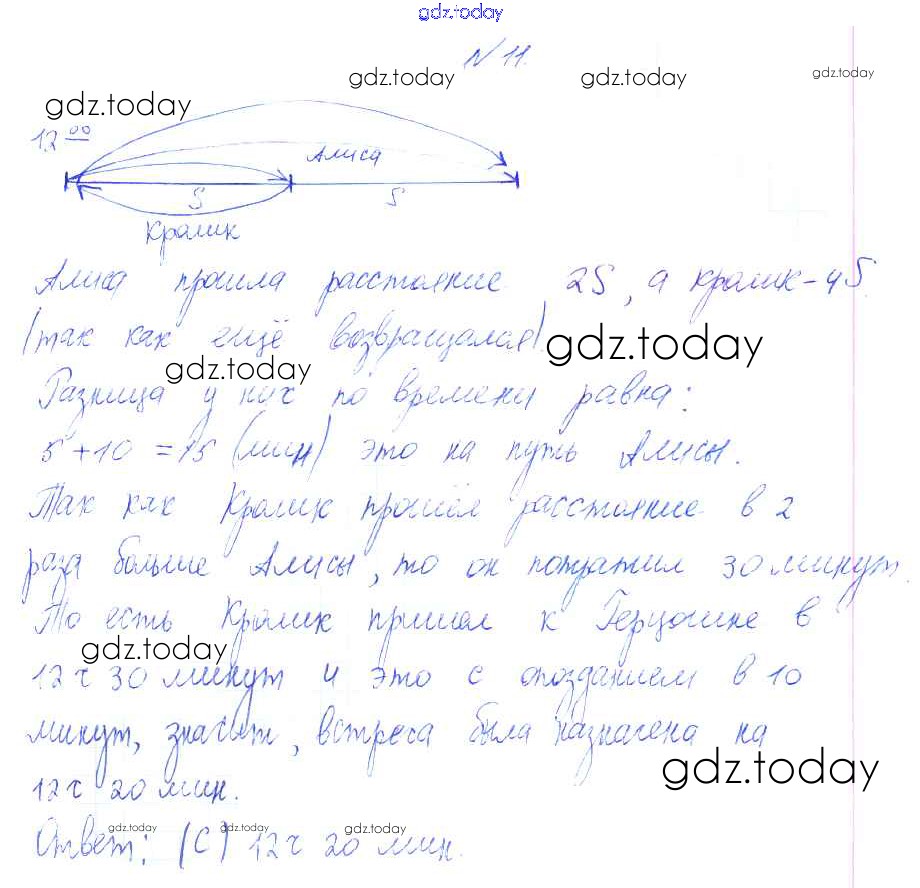 gdz.today
N 11.
gdz.today gdz.today gdz.today
gdz.today
12 00
Алиса
S S
Кролик
Алиса прошла расстояние 2S, а кролик - 4S.
(так как ещё возвращался)
gdz.today
gdz.today
Разница у них по времени равна:
5 + 10 = 15 (мин) это на путь Алисы.
Так как Кролик прошёл расстояние в 2
раза больше Алисы, то он потратил 30 минут.
То есть Кролик пришел к Герцогине в
gdz.today
12 ч 30 минут и это с опозданием в 10
минут, значит, встреча была назначена на
gdz.today
12 ч 20 мин.
gdz.today gdz.today gdz.today
Ответ: (C) 12 ч 20 мин.